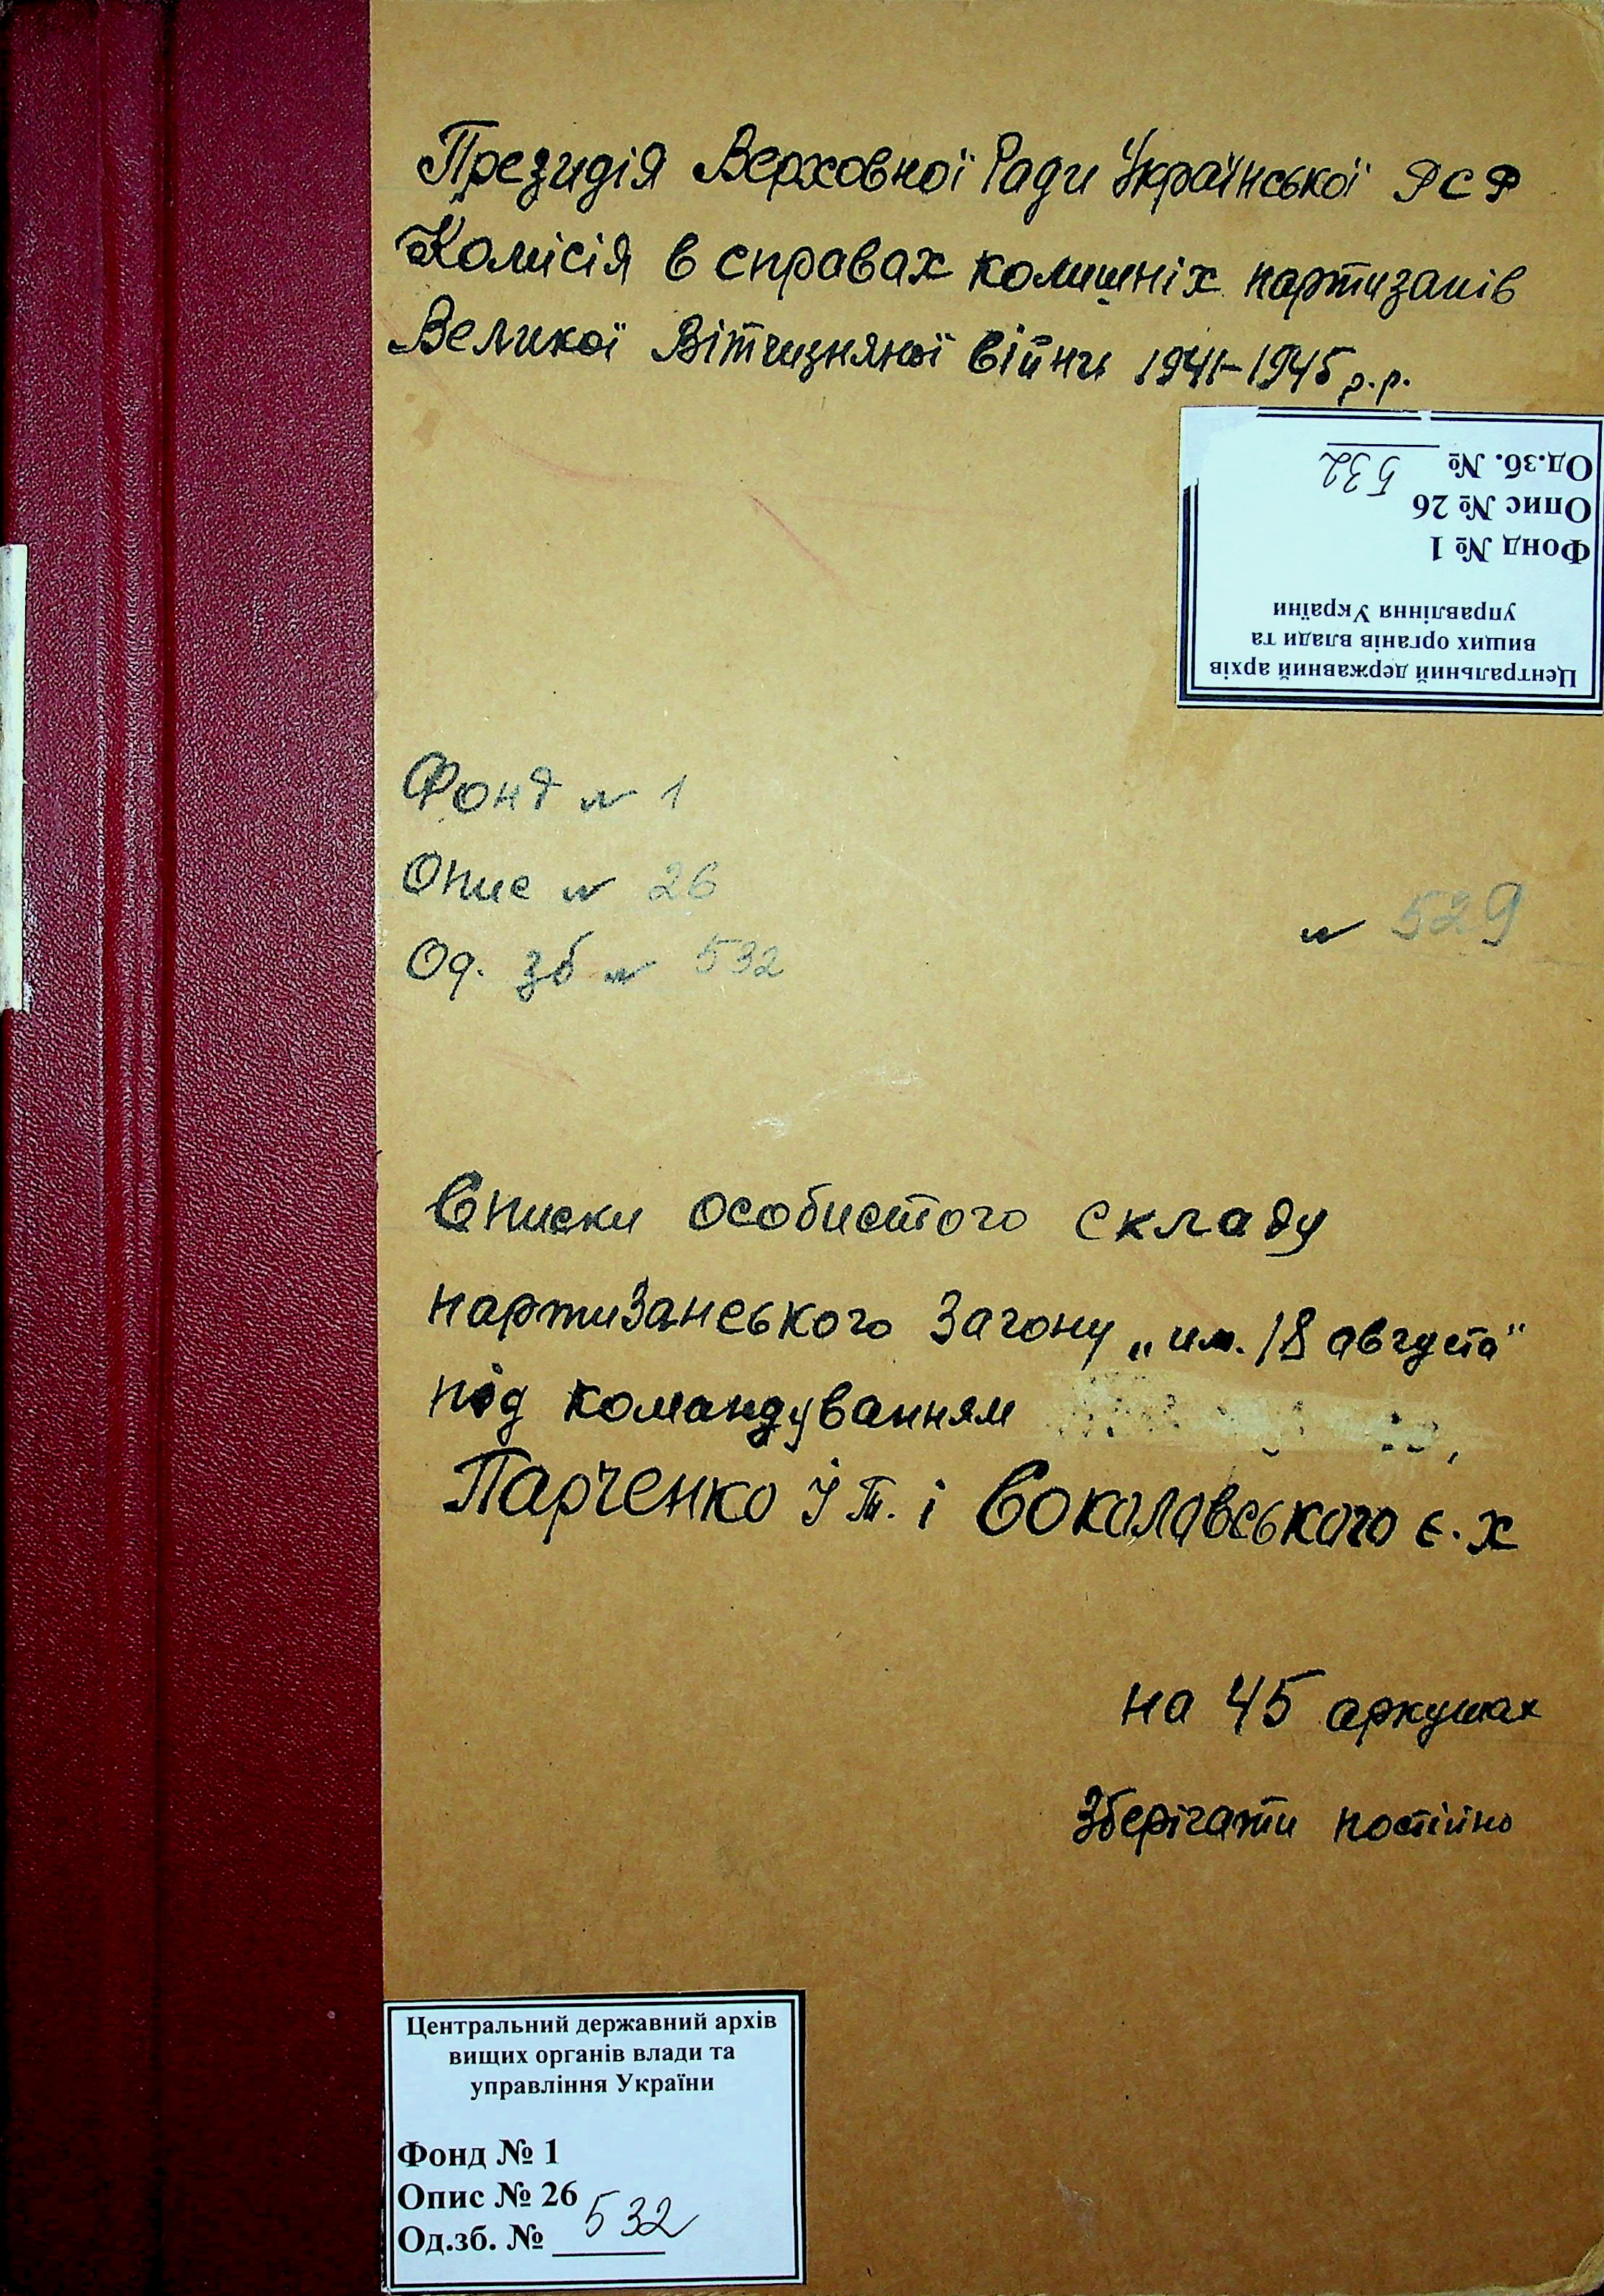 Президія Верховної Ради Української РСР
Комісія в справах колишніх партизанів
Великої Вітчизняної війни 1941-1945 р.р.
Центральний державний архів
вищих органів влади та
управління України
Фонд № 1
Опис № 26
Од.зб. № 532
Фонд № 1
Опис № 26
№ 529
Од. зб № 532
Списки особистого складу
партизанського загону „им. 18 августа"
під командуванням ,
Парченко І Т. і Соколовського Є. Х
на 45 аркушах
Зберігати постійно
Центральний державний архів
вищих органів влади та
управління України
Фонд № 1
Опис № 26
Од.зб. № 532